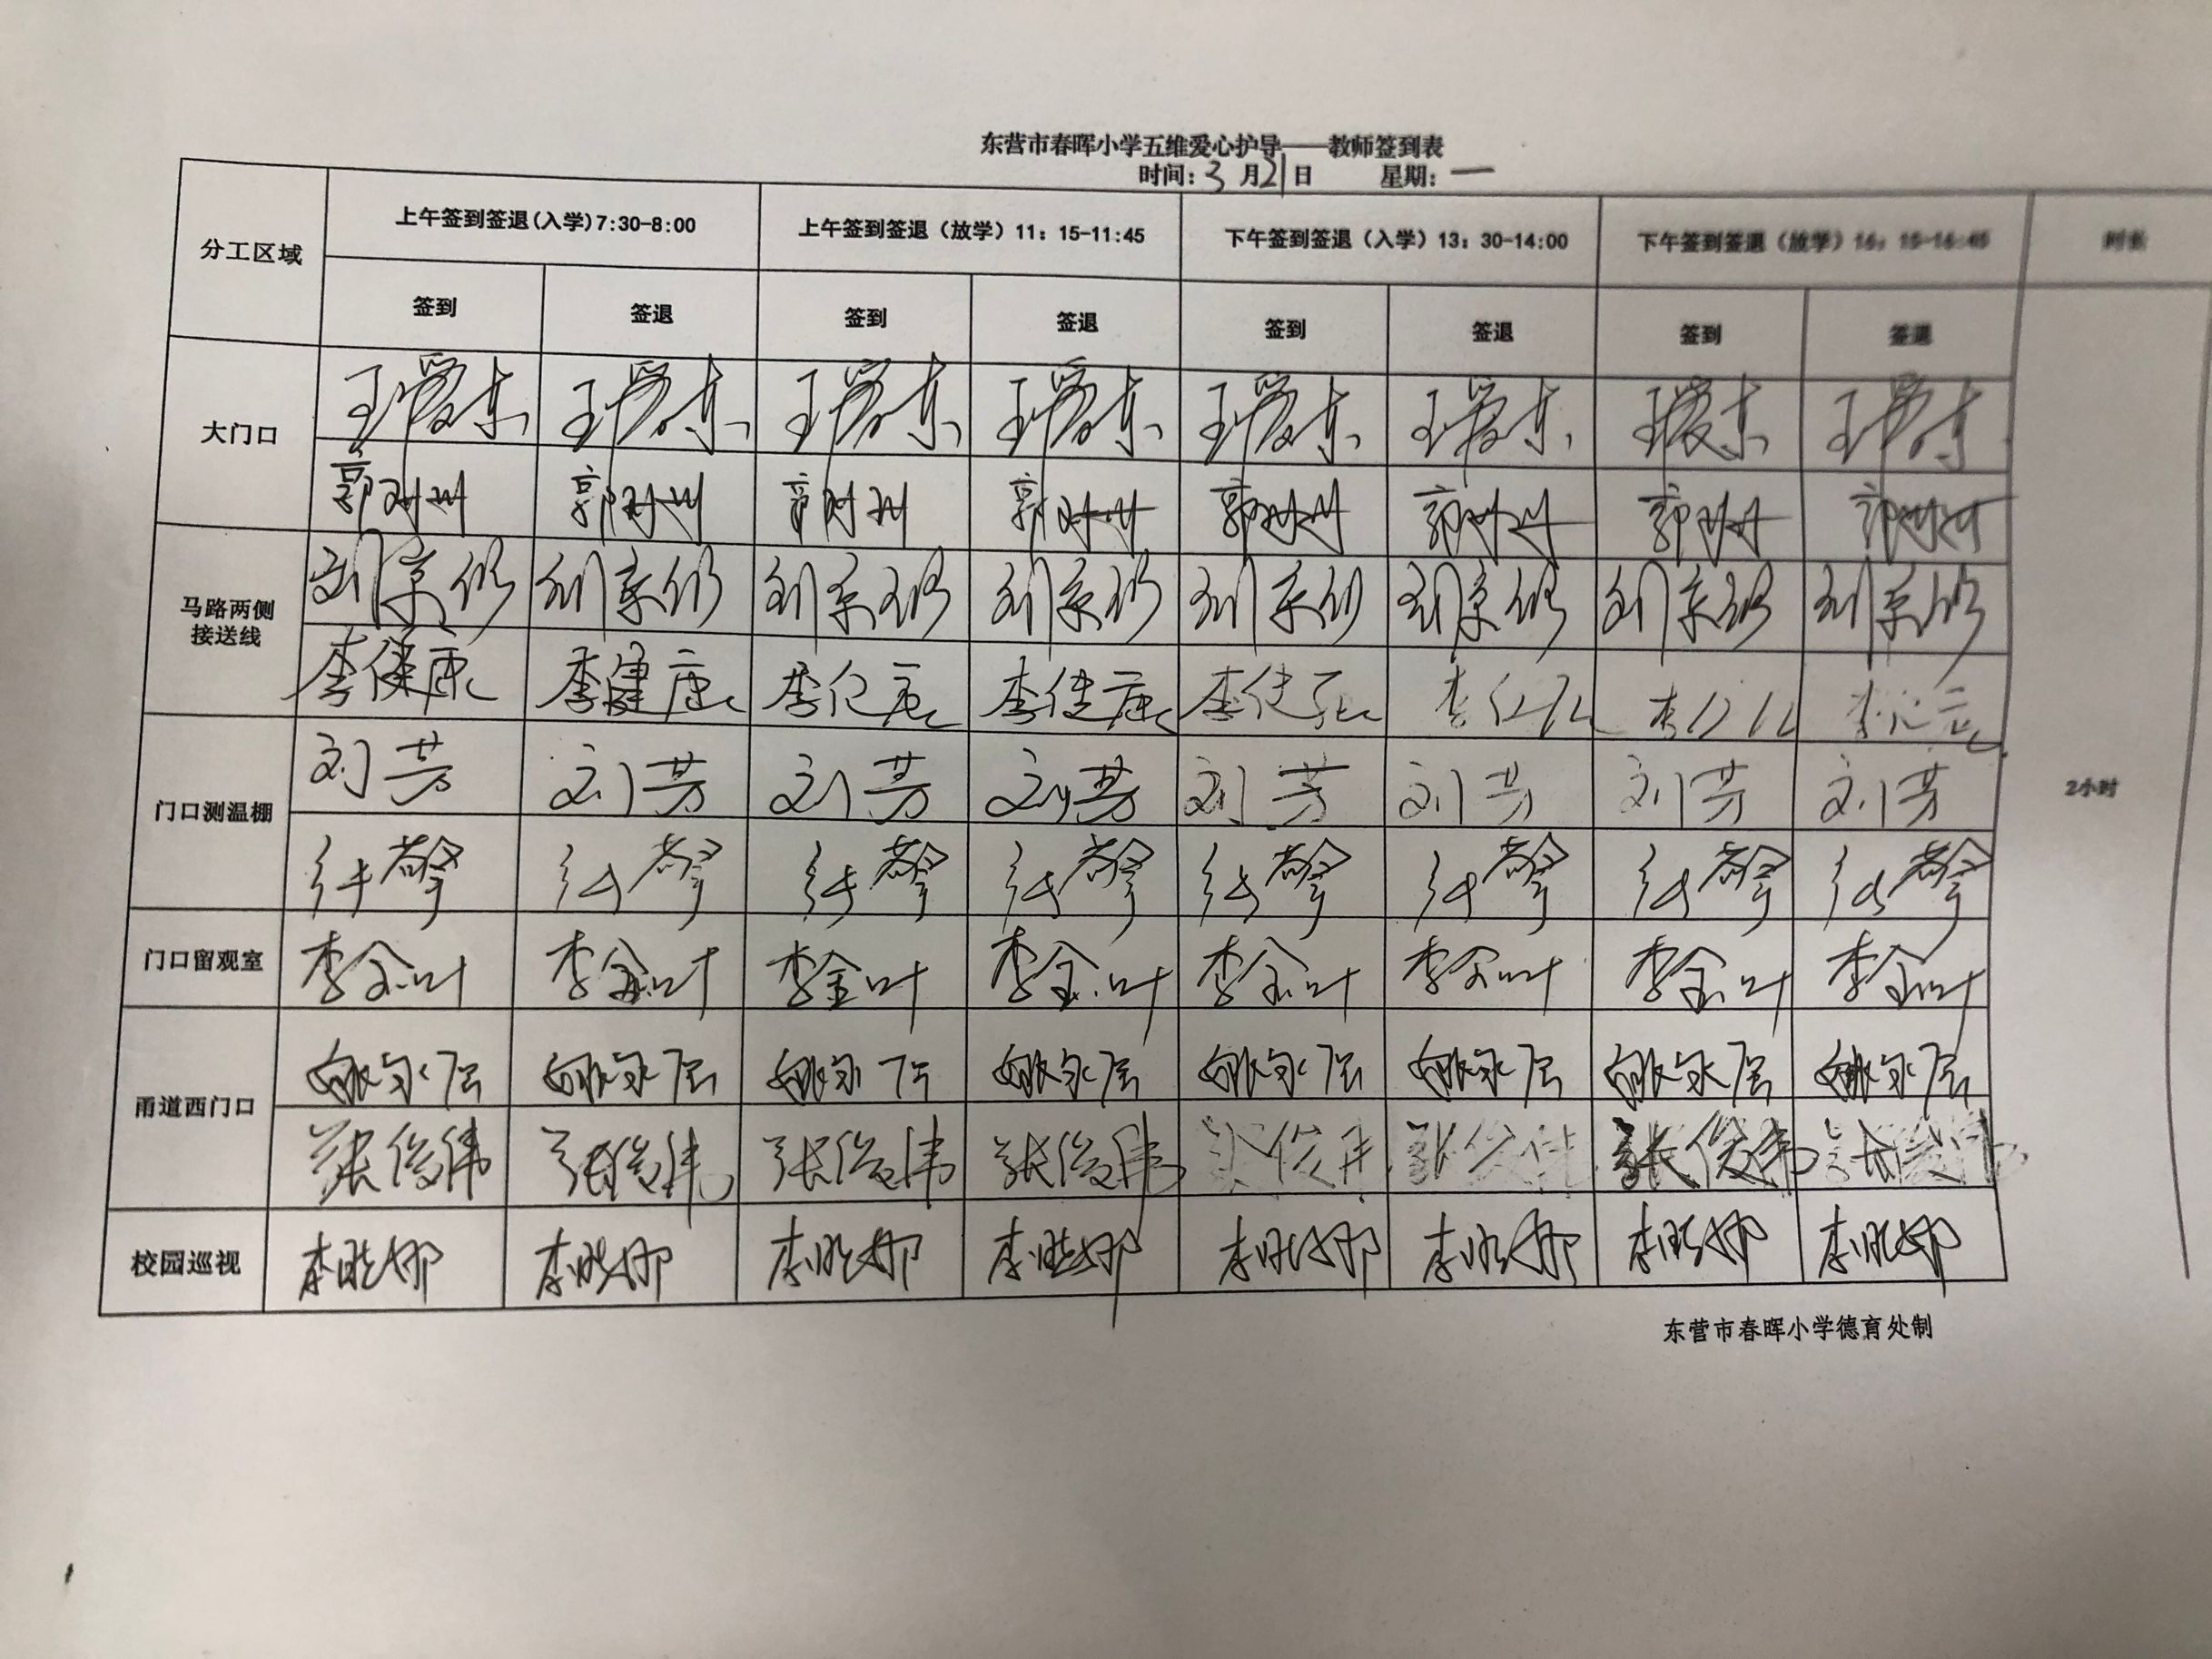 东营市春晖小学五维爱心护导——教师签到表
时间：3月21日 星期：一
分工区域 上午签到签退(入学)7:30-8:00 上午签到签退（放学）11：15-11:45 下午签到签退（入学）13：30-14:00 下午签到签退（放学）16：15-16:45 时长
签到 签退 签到 签退 签到 签退 签到 签退
大门口 王爱东 王爱东 王爱东 王爱东 王爱东 王爱东 王爱东 王爱东
郭 郭 郭 郭 郭 郭 郭 郭
马路两侧
接送线
刘京 刘京 刘京 刘京 刘京 刘京 刘京 刘京
李健康 李健康 李健康 李健康 李健康 李健康 李健康 李健康
门口测温棚 刘芳 刘芳 刘芳 刘芳 刘芳 刘芳 刘芳 刘芳
2小时
门口留观室 李金叶 李金叶 李金叶 李金叶 李金叶 李金叶 李金叶 李金叶
甬道西门口 姚永 姚永 姚永 姚永 姚永 姚永 姚永 姚永
张俊伟 张俊伟 张俊伟 张俊伟 张俊伟 张俊伟 张俊伟 张俊伟
校园巡视 李晓娜 李晓娜 李晓娜 李晓娜 李晓娜 李晓娜 李晓娜 李晓娜
东营市春晖小学德育处制